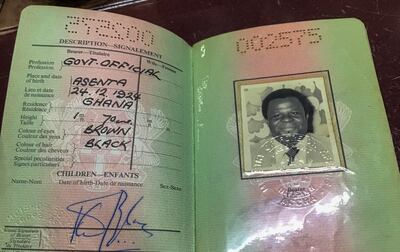 002575
DESCRIPTION—SIGNALEMENT
Bearer—Titulaire
Wife—Femme
Profession GOVT. OFFICIAL
Profession
Place and date
of birth ASENTA
Lieu et date
de naissance 24.12.1924
Residence GHANA
Résidence
Height
Taille
Colour of eyes BROWN
Couleur des yeux
Colour of hair BLACK
Couleur des cheveux
Special peculiarities
Signes particuliers
CHILDREN—ENFANTS
Name—Nom Date of birth—Date de naissance Sex—Sexe
Usual Signature
of Bearer
Signature
du Titulaire
002575
Bearer